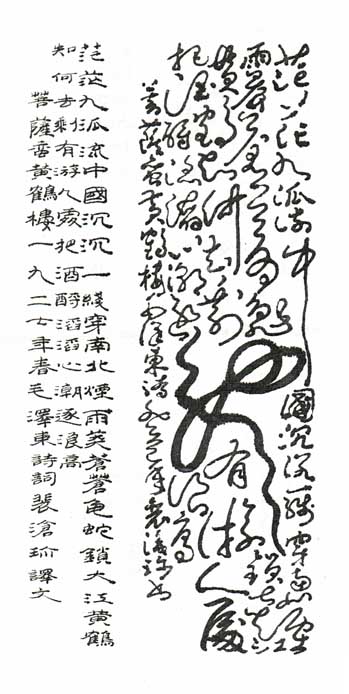 茫茫九派流中國沉沉一綫穿南北煙
雨莽蒼蒼龜蛇鎖大江
黃鶴知何去剩有游人處
把酒酹滔滔心潮逐浪高
菩薩蠻黃鶴樓毛澤東詩
茫茫九派流中國沉沉一綫穿南北煙雨莽蒼蒼龜蛇鎖大江黃鶴
知何去剩有游人處把酒酹滔滔心潮逐浪高
菩薩蠻黃鶴樓一九二七年春毛澤東詩詞裴滄譯文